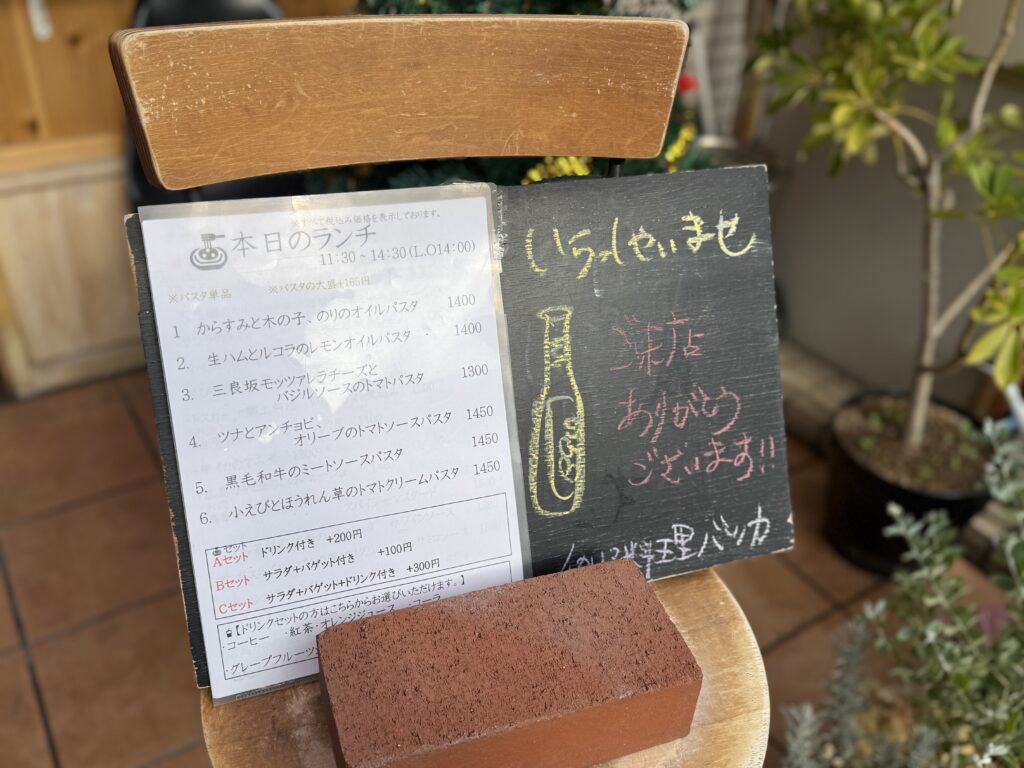 ※すべて税込み価格を表示しております。
本日のランチ
11:30～14:30(L.O14:00)
※パスタ単品 ※パスタの大盛+165円
1 からすみと木の子、のりのオイルパスタ 1400
2. 生ハムとルコラのレモンオイルパスタ 1400
3. 三良坂モッツァレラチーズと
バジルソースのトマトパスタ 1300
4. ツナとアンチョビ、
オリーブのトマトソースパスタ 1450
5. 黒毛和牛のミートソースパスタ 1450
6. 小えびとほうれん草のトマトクリームパスタ 1450
セット
Aセット ドリンク付き +200円
Bセット サラダ+バゲット付き +100円
Cセット サラダ+バゲット+ドリンク付き +300円
【ドリンクセットの方はこちらからお選びいただけます。】
・コーヒー ・紅茶・オレンジジュース ・コーラ
・グレープフルーツ
いらっしゃいませ
ご来店
ありがとう
ございます!!
料理バッカ